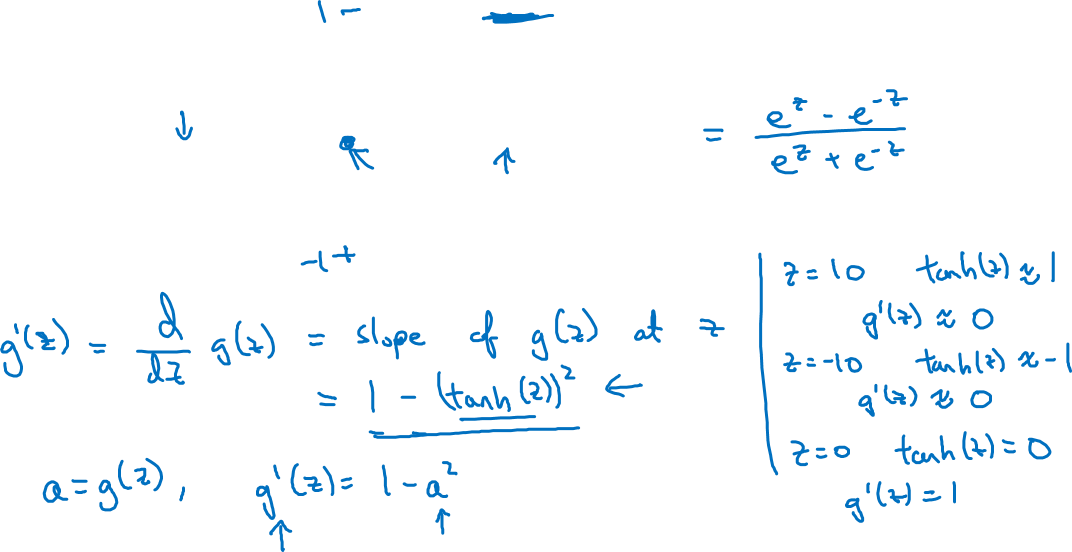 1 -
= \frac{e^z - e^{-z}}{e^z + e^{-z}}
-1 +
g'(z) = \frac{d}{dz} g(z) = slope of g(z) at z
= 1 - (tanh(z))^2 ←
a = g(z), g'(z) = 1 - a^2
z = 10 tanh(z) ≈ 1
g'(z) ≈ 0
z = -10 tanh(z) ≈ -1
g'(z) ≈ 0
z = 0 tanh(z) = 0
g'(z) = 1